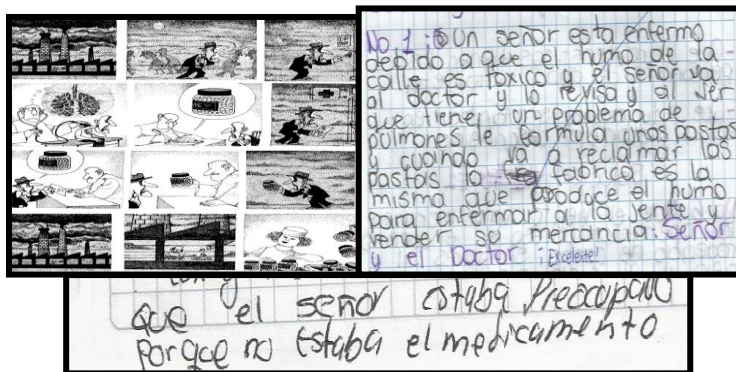 No. 1: Un señor esta enfermo
debido a que el humo de la
calle es toxico y el señor va
al doctor y lo revisa y al ver
que tiene un problema de
pulmones le formula unas pastas
y cuando va a reclamar las
pastas la fabrica es la
misma que produce el humo
para enfermar a la jente y
vender su mercancia: Señor
y el Doctor ¡Excelente!
que el señor estaba Preocupado
Porque no estaba el medicamento